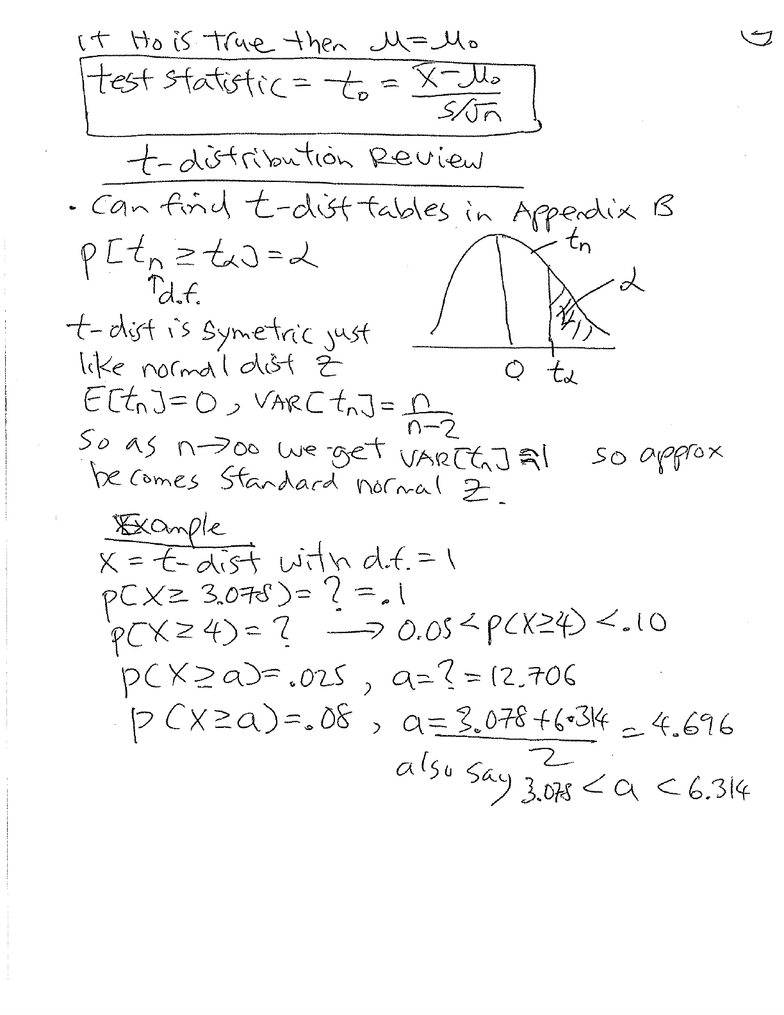 If Ho is true then μ=μo
test statistic = to = x̄-μo / s/√n
t-distribution Review
• Can find t-dist tables in Appendix B
P[tn ≥ tα] = α
↑d.f.
tn
α
0 tα
t-dist is symetric just
like normal dist Z
E[tn]=0, VAR[tn]= n/n-2
So as n→∞ we get VAR[tn]≈1 so approx
becomes standard normal Z.
Example
X = t-dist with d.f. = 1
P(X≥ 3.078)= ? = .1
P(X≥4)= ? → 0.05<P(X≥4)<.10
P(X≥a)=.025, a=?=12.706
P(X≥a)=.08, a= 3.078+6.314 / 2 = 4.696
also say 3.078 < a < 6.314